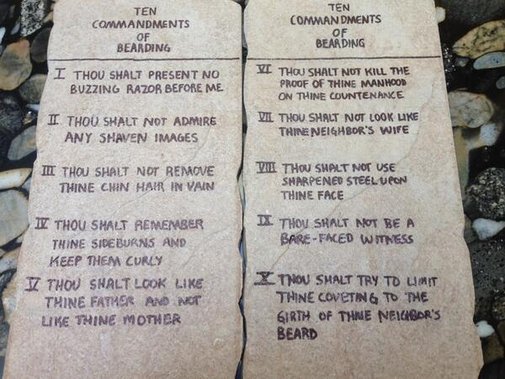 TEN
COMMANDMENTS
OF
BEARDING
I THOU SHALT PRESENT NO
BUZZING RAZOR BEFORE ME
II THOU SHALT NOT ADMIRE
ANY SHAVEN IMAGES
III THOU SHALT NOT REMOVE
THINE CHIN HAIR IN VAIN
IV THOU SHALT REMEMBER
THINE SIDEBURNS AND
KEEP THEM CURLY
V THOU SHALT LOOK LIKE
THINE FATHER AND NOT
LIKE THINE MOTHER
TEN
COMMANDMENTS
OF
BEARDING
VI THOU SHALT NOT KILL THE
PROOF OF THINE MANHOOD
ON THINE COUNTENANCE
VII THOU SHALT NOT LOOK LIKE
THINE NEIGHBOR'S WIFE
VIII THOU SHALT NOT USE
SHARPENED STEEL UPON
THINE FACE
IX THOU SHALT NOT BE A
BARE-FACED WITNESS
X THOU SHALT TRY TO LIMIT
THINE COVETING TO THE
GIRTH OF THINE NEIGHBOR'S
BEARD